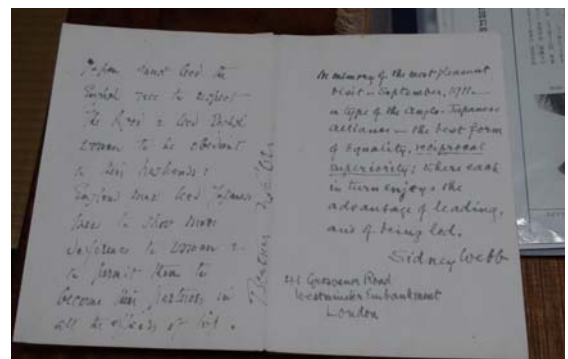 Japan must lead the
English race to respect
the
women to be obedient
to their husbands:
England must lead Japanese
men to show more
deference to women &
to permit them to
become their partners in
all the affairs of life.
Beatrice Webb
In memory of the most pleasant
visit – September, 1911 –
a type of the Anglo-Japanese
alliance – the best form
of Equality, reciprocal
superiority; where each
in turn enjoys the
advantage of leading,
and of being led.
Sidney Webb
41 Grosvenor Road
Westminster Embankment
London